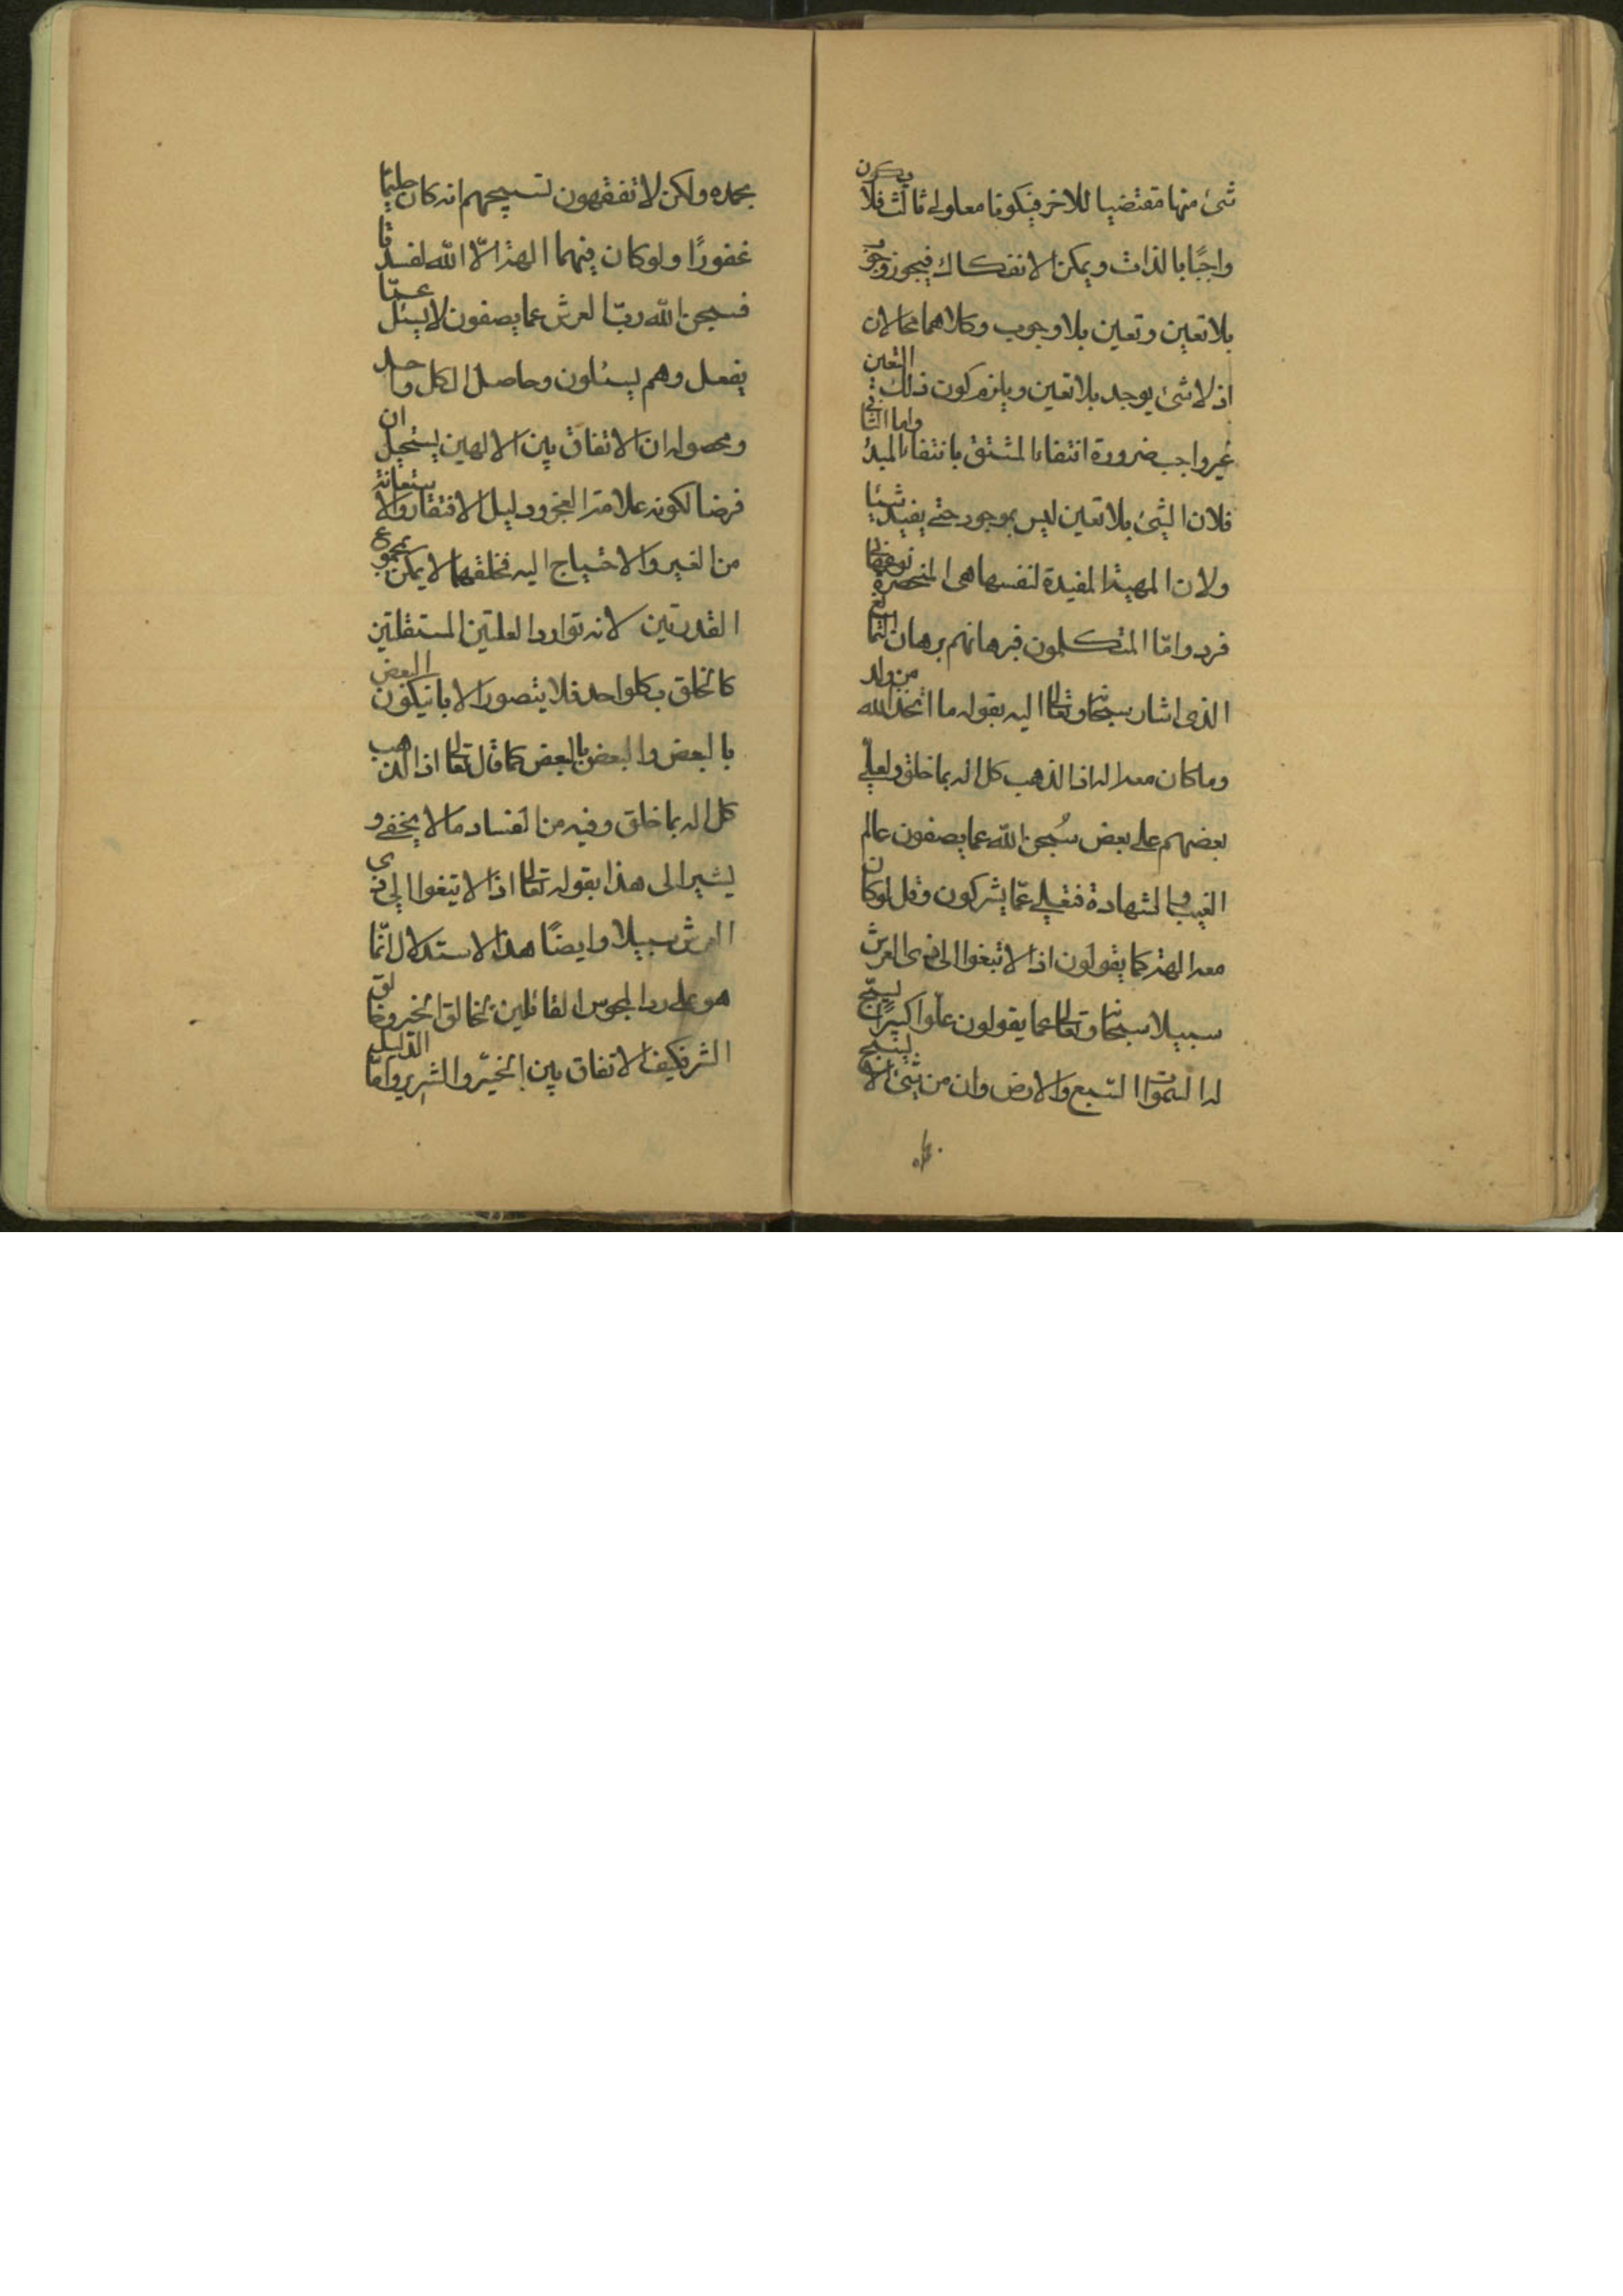 شئ منها مقتضيا للاخر فيكونا معلولي ثالث فلا يكون
واجبًا بالذات ويمكن الانفكاك فيجوز وجوب
بلا تعين وتعين بلا وجوب وكلاهما محالان
اذ لا شئ يوجد بلا تعين ويلزم كون ذلك التعين
غير واجب ضرورة انتفاء المشتق بانتفاء المبدء واما الثاني
فلان الشئ بلا تعين ليس بموجود حتى يفيد شيئا
ولان المهية المفيدة لنفسها هي المنحصرة نوعها في
فرد واما المتكلمون فبرهانهم برهان التمانع
الذى اشار سبحانه وتعالى اليه بقوله ما اتخذ الله من ولد
وما كان معه اله اذا لذهب كل اله بما خلق ولعلى
بعضهم على بعض سُبحن الله عما يصفون عالم
الغيب والشهادة فتعلى عمّا يشركون وقل لو كان
معه الهة كما يقولون اذا لا تبغوا الى ذى العرش
سبيلا سبحانه وتعالى عما يقولون علوا كبيرًا يسبّح
له السموات السبع والارض وان من شئ الا يسبح
بحمده ولكن لا تفقهون تسبيحهم انه كان حليمًا
غفورًا ولو كان فيهما الهة الّا الله لفسدتا
فسبحن الله ربّ العرش عما يصفون لا يسئل عمّا
يفعل وهم يسئلون وحاصل الكل واحد
ومحصوله ان الاتفاق بين الالهين يستحيل ان
فرضا لكونه علامة العجز ودليل الافتقار والاستعانة
من الغير والاحتياج اليه فخلقهما لا يمكن بمجموع
القدرتين لانه توارد العلتين المستقلتين
كالخلق بكلواحد فلا يتصور الا بان يكون البعض
بالبعض والبعض بالبعض كما قال تعالى اذا لذهب
كل اله بما خلق وفيه من الفساد ما لا يخفى و
يشير الى هذا بقوله تعالى اذا لا تبغوا الى ذى
العرش سبيلا وايضًا هذا الاستدلال انّما
هو على رد المجوس القائلين بخالق الخير وخالق
الشر فكيف الاتفاق بين الخيّر والشرير وامّا الدّليل